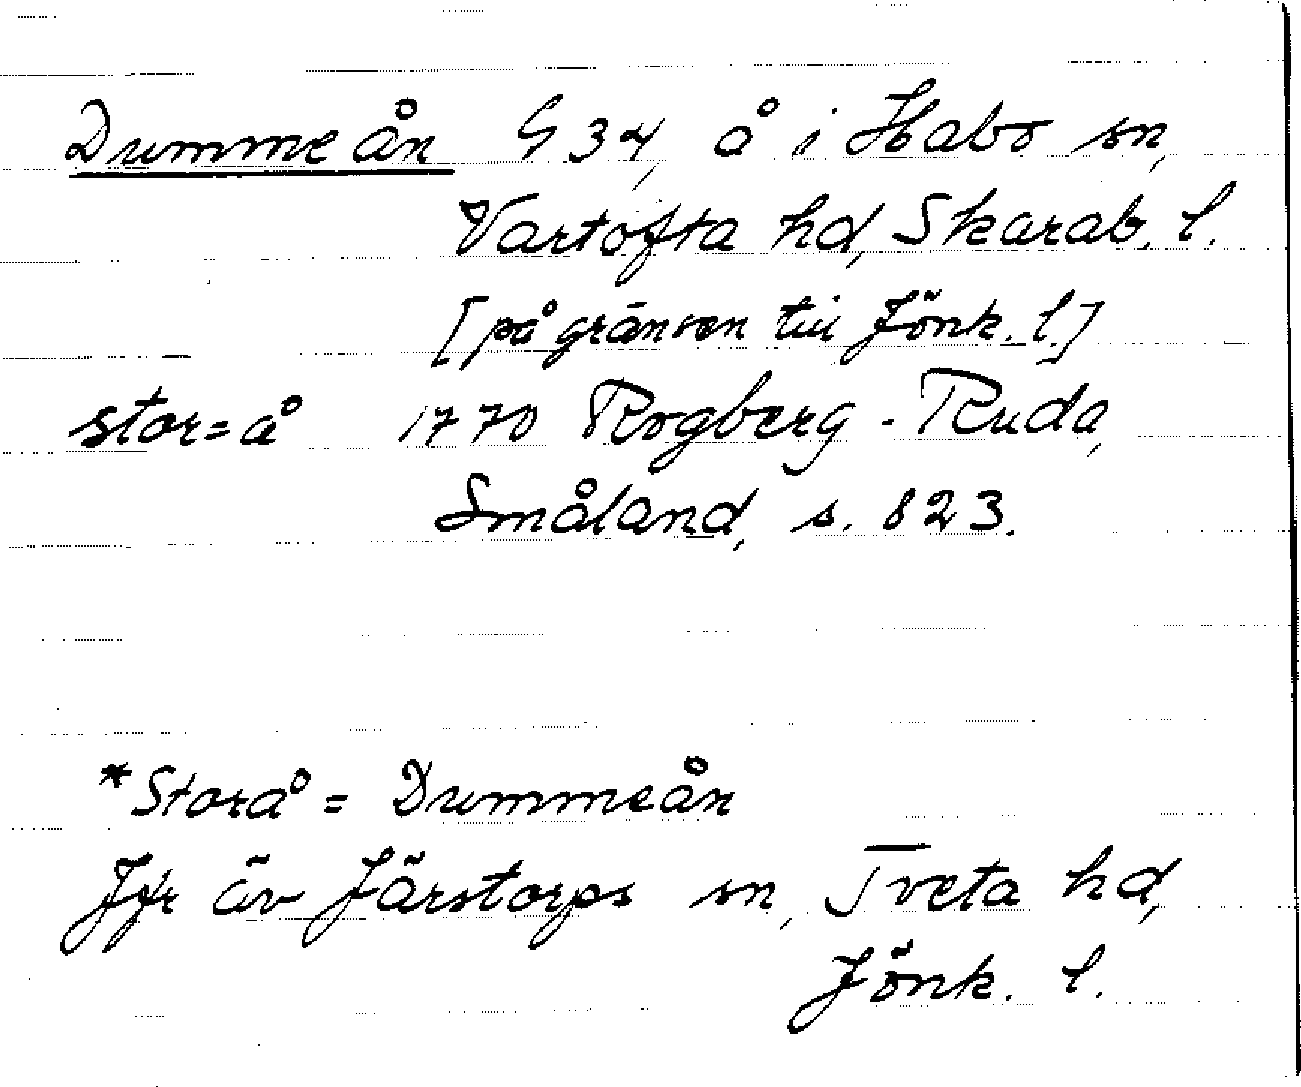 Dummeån G 34, å i Habo sn,
Vartofta hd, Skarab. l.
[på gränsen till Jönk. l.]
stor=å 1770 Rogberg - Ruda,
Småland, s. 823.
*Storå = Dummeån
Jfr äv Järstorps sn, Tveta hd,
Jönk. l.